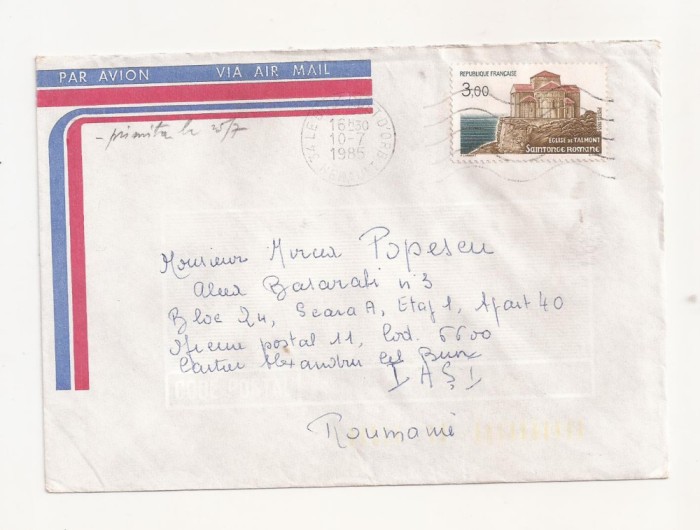 PAR AVION VIA AIR MAIL
REPUBLIQUE FRANÇAISE
3,00
EGLISE DE TALMONT
Saintonge Romane
16H30
10-7
1985
HERAULT
- primita la 25/7
Monsieur Mircea Popescu
Alea Basarabi n°3
Bloc Z4, Scara A, Etaj 1, Apart 40
Oficiul postal 11, Cod. 6600
Cartier Alexandru cel Bun
IAŞI
CODE POSTAL
Roumanie